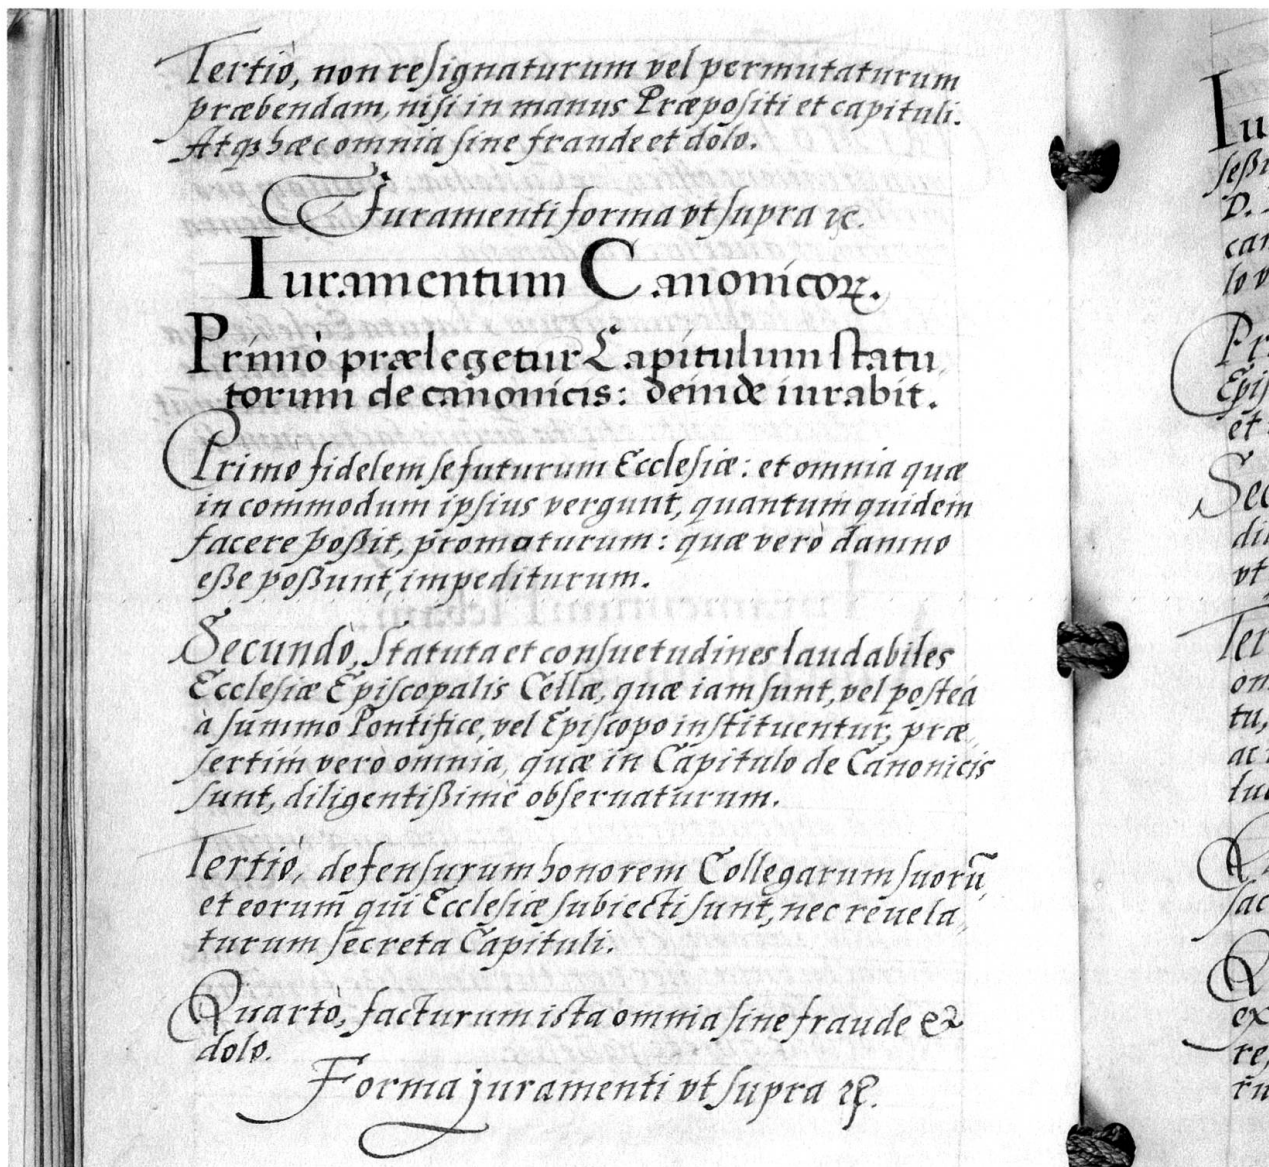 Tertiò, non resignaturum vel permutaturum
præbendam, nisi in manus Præpositi et capituli.
Atqꝫ hæc omnia sine fraude et dolo.
Juramenti forma vt supra ꝛc.
Iuramentum Canonicoꝝ.
Primò prælegetur Capitulum statu
torum de canonicis: deinde iurabit.
Primo fidelem se futurum Ecclesiæ: et omnia quæ
in commodum ipsius vergunt, quantum quidem
facere poßit, promoturum: quæ verò damno
eße poßunt, impediturum.
Secundò, Statuta et consuetudines laudabiles
Ecclesiæ Episcopalis Cellæ, quæ iam sunt, vel posteà
à summo Pontifice, vel Episcopo instituentur, præ,
sertim verò omnia, quæ in Capitulo de Canonicis
sunt, diligentißimè obseruaturum.
Tertiò, defensurum honorem Collegarum suorū
et eorum qui Ecclesiæ subiecti sunt, nec reuela,
turum secreta Capituli.
Quartò, facturum ista omnia sine fraude &
dolo.
Forma juramenti vt supra ꝛc.
Iu
P.
can
lo v
Pr
Epis
et
Sec
vt
Ter
tu,
ac
ex
re,